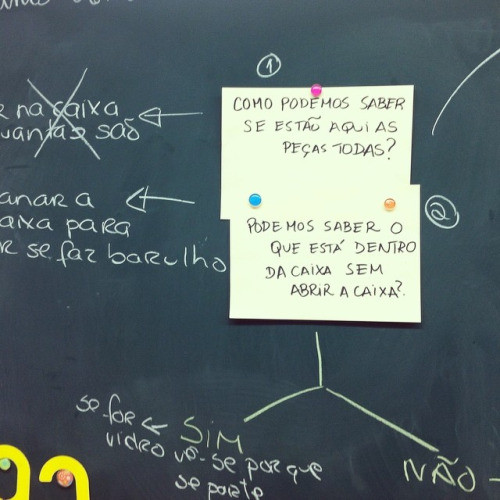 ①
e na caixa
quantas são
COMO PODEMOS SABER
SE ESTÃO AQUI AS
PEÇAS TODAS?
anar a
aixa para
r se faz barulho
②
PODEMOS SABER O
QUE ESTÁ DENTRO
DA CAIXA SEM
ABRIR A CAIXA?
se for
vidro
SIM
vê-se porque
se parte
NÃO